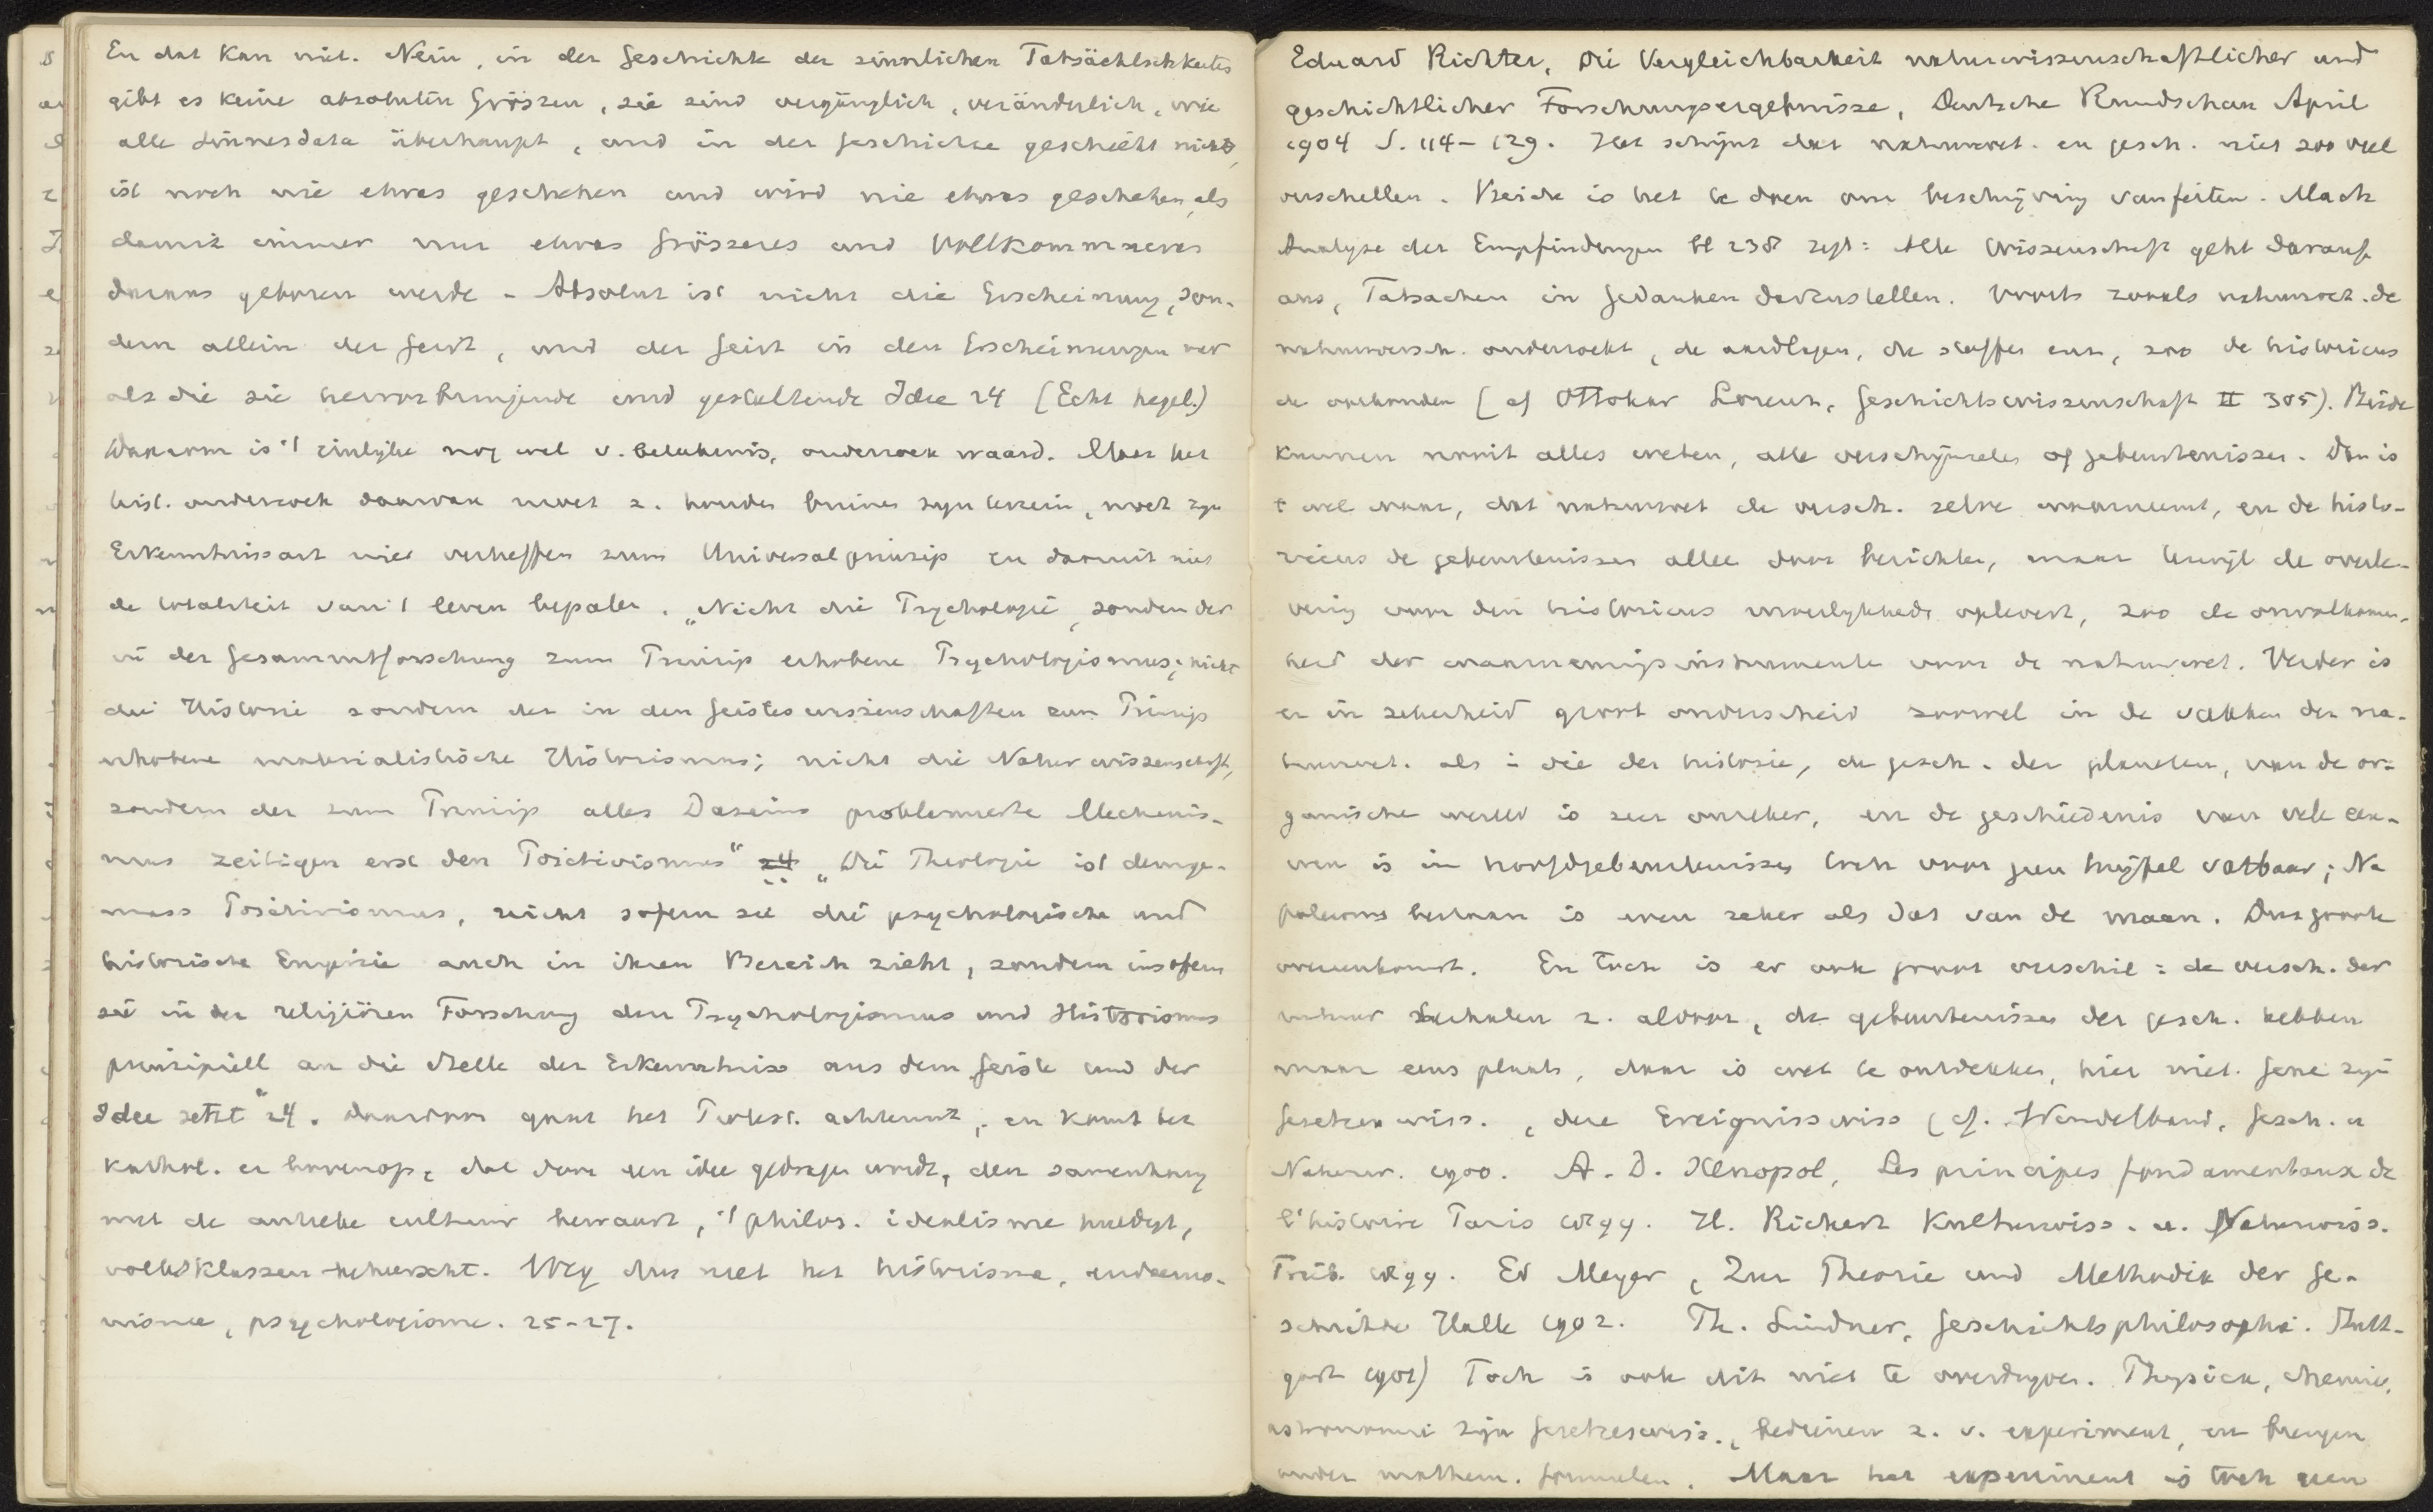 En dat kan niet. Nein, in der Geschichte der sinnlichen Tatsächlichkeiten
gibt es keine absoluten Grössen, sie sind vergänglich, veränderlich, wie
alle Sinnesdata überhaupt, und in der Geschichte geschieht nichts,
ist noch nie etwas geschehen und wird nie etwas geschehen, als
damit immer nur etwas Grösseres und Vollkommneres
daraus geboren werde. Absolut ist nicht die Erscheinung, son-
dern allein der Geist, und der Geist in den Erscheinungen nur
als die sie hervorbringende und gestaltende Idee 24 (Echt hegel.)
Daarom is 't eindige nog wel v. beteekenis, onderzoek waard. Maar het
hist. onderzoek daarvan moet z. houden binnen zijn terrein, moet zijn
Erkenntnissart niet verheffen zum Universalprinzip en daarmit niet
de totaliteit van 't leven bepalen. „Nicht die Psychologie, sondern der
in der Gesammtforschung zum Prinzip erhobene Psychologismus; nicht
die Historie sondern der in den Geisteswissenschaften zum Prinzip
erhobene materialistische Historismus; nicht die Naturwissenschaft,
sondern der zum Prinzip alles Daseins Mechanis-
mus zeitigen erst den Positivismus“ 24 „Die Theologie ist demge-
mäss Positivismus, nicht sofern sie die psychologische und
historische Empirie auch in ihren Bereich zieht, sondern insofern
sie in der religiösen Forschung den Psychologismus und Historismus
prinzipiell an die Stelle der Erkenntniss aus dem Geiste und der
Idee setzt“ 24. Daardoor gaat het Protest. achteruit, en komt het
kathol. er bovenop, dat door een idee gedragen wordt, den samenhang
met de antieke cultuur bewaart, 't philos. idealisme huldigt,
volksklassen beheerscht. Weg dus met het historisme, eudaemo-
nisme, psychologisme. 25-27.
Eduard Richter, Die Vergleichbarkeit naturwissenschaftlicher und
geschichtlicher Forschungsergebnisse, Deutsche Rundschau April
1904 S. 114-129. Het schijnt dat natuurwet. en gesch. niet zoo veel
verschellen. Beide is het te doen om beschrijving van feiten. Mach
Analyse der Empfindungen bl 238 zegt: Alle Wissenschaft geht darauf
aus, Tatsachen in Gedanken darzustellen. Voorts zooals natuurwet. de
natuurversch. onderzoekt, de aardlagen, de stoffen enz, zoo de historicus
de oorkonden (cf Ottokar Lorenz, Geschichtswissenschaft II 305). Beide
kunnen nooit alles weten, alle verschijnselen of gebeurtenissen. Dan is
't wel waar, dat natuurwet de versch. zelve waarneemt, en de histo-
ricus de gebeurtenissen alle door berichten, maar terwijl de overle-
vering voor den historicus moeilijkheden oplevert, zoo de onvolkomen-
heid der waarnemingsinstrumenten voor de natuurwet. Verder is
er in zekerheid groot onderscheid zoowel in de vakken der na-
tuurwet. als in die der historie, de gesch. der planeten, van de or-
ganische wereld is zeer onzeker, en de geschiedenis van vele eeu-
wen is in hoofdgebeurtenissen toch voor geen twijfel vatbaar; Na
poleons bestaan is even zeker als dat van de maan. Dus groote
overeenkomst. En toch is er ook groot verschil: de versch. der
natuur herhalen z. aldoor, de gebeurtenissen der gesch. hebben
maar eens plaats, daar is wet te ontdekken, hier niet. Gene zijn
Gesetzeswiss., deze Ereignisswiss (cf. Windelband, Gesch. u
Naturw. 1900. A. D. Xénopol, Les principes fondamentaux de
l'histoire Paris 1899. H. Rickert Kulturwiss. u. Naturwiss.
Freib. 1899. Ed Meyer, Zur Theorie und Methodik der Ge-
schichte Halle 1902. Th. Lindner, Geschichtsphilosophie. Stutt-
gart 1901) Toch is ook dit niet te overdrijven. Physica, chemie,
astronomie zijn Gesetzeswiss., bedienen z. v. experiment, en brengen
onder mathem. formulen. Maar het experiment is toch geen